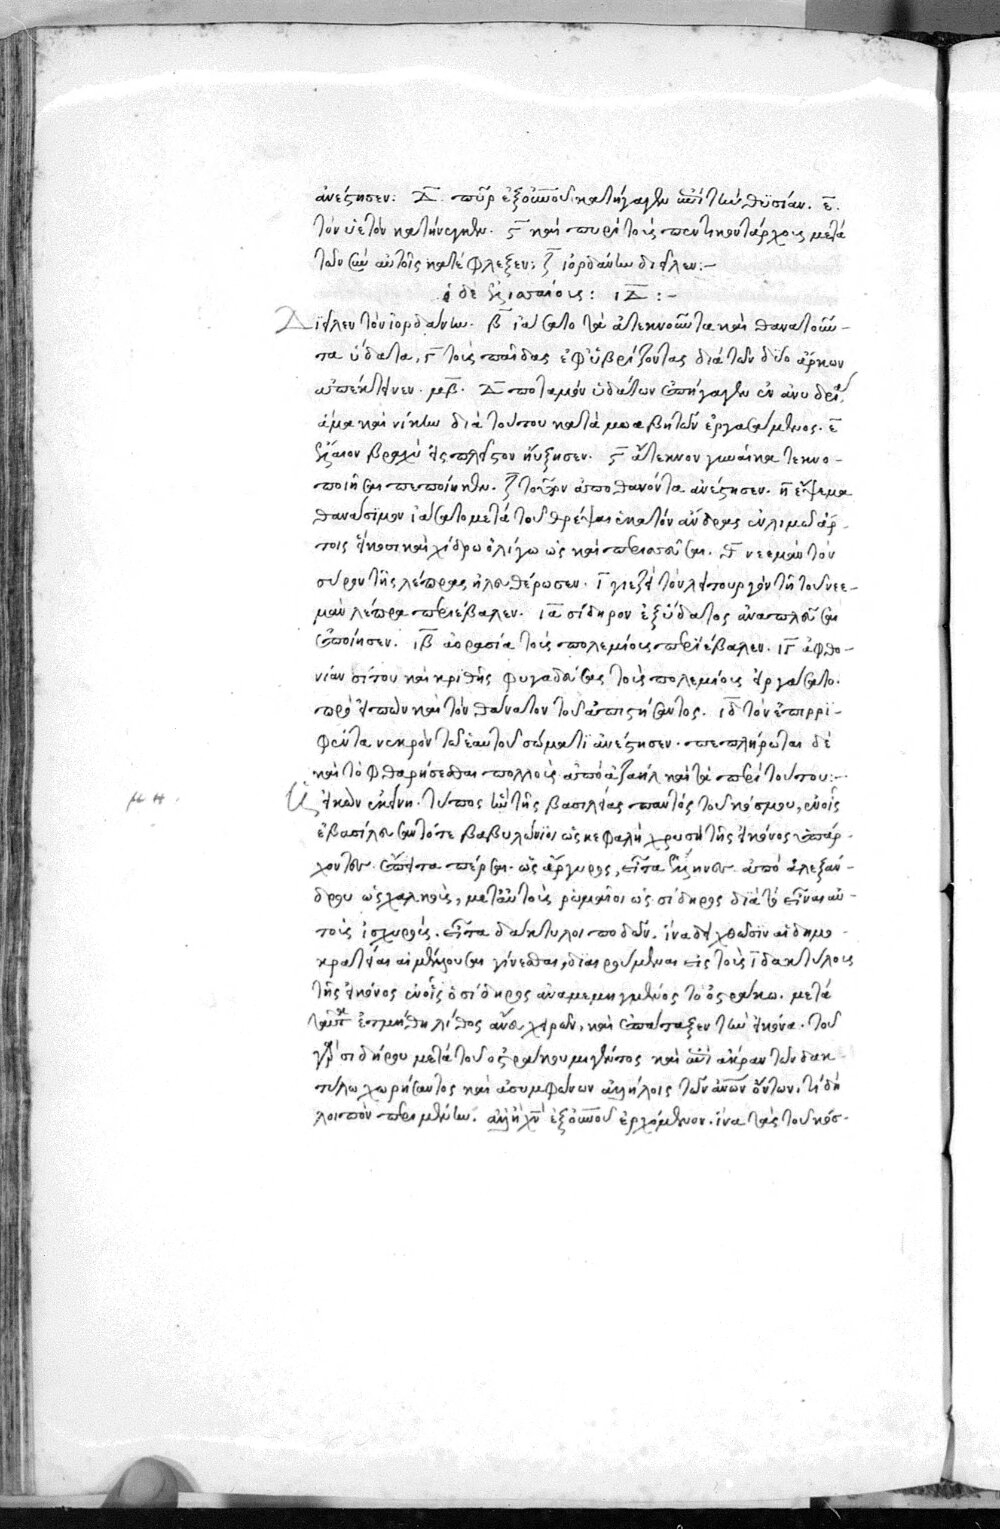 ἀνέστησεν: Δ̅ πῦρ ἐξ οὐ̅νοῦ κατήγαγεν ἐπὶ τὴν θυσίαν. ε̅
τὸν ὑετὸν κατήνεγκεν. ϛ̅ καὶ πυρὶ τοὺς πεντηκοντάρχους μετὰ
τῶν σὺν αὐτοῖς κατέφλεξεν: ζ̅ ἰορδάνην διεῖλεν:-
ὁ δὲ ἐλισσαίος: ι̅Δ̅:-
Διεῖλεν τὸν ἰορδάνην. β̅ ἰάσατο τὰ ἀτεκνοῦντα καὶ θανατοῦν-
τα ὕδατα, γ̅ τοὺς παῖδας ἐφυβρίζοντας διὰ τῶν δύο ἄρκων
ἀπέκτεινεν μβ̅. Δ̅ ποταμὸν ὑδάτων ἐπήγαγεν ἐν ἀνυδρία,
ἅμα καὶ νίκην διὰ τούτου κατὰ μωαβητῶν ἐργασάμενος. ε̅
ἔλαιον βραχὺ εἰς πλεῖστον ηὔξησεν. ϛ̅ ἄτεκνον γυναῖκα τεκνο-
ποιῆσαι πεποίηκεν. ζ̅ τοῦτον ἀποθανόντα ἀνέστησεν. η̅ ἕψεμα
θανάσιμον ἰάσατο μετὰ τοῦ θρέψαι ἑκατὸν ἄνδρας ἐν λιμῷ ἄρ-
τοις εἴκοσι καὶ χίδρω ὀλίγω ὡς καὶ περισσεῦσαι. θ̅ νεεμὰν τὸν
σύρον τῆς λέπρας ἠλευθέρωσεν. ι̅ γιεζῆ τὸν λειτουργὸν τῆ τοῦ νεε-
μὰν λέπρα περιέβαλεν. ια̅ σίδηρον ἐξ ὕδατος ἀναπλεῦσαι
ἐποίησεν. ιβ̅ ἀορασία τοὺς πολεμίους περιέβαλεν. ιγ̅ ἀφθο-
νίαν σίτου καὶ κριθῆς φυγαδεύσας τοὺς πολεμίους εἰργάσατο.
προειπὼν καὶ τὸν θάνατον τοῦ ἀπιστήσαντος. ιδ̅ τὸν ἐπιρρι-
φέντα νεκρὸν τῶ ἑαυτοῦ σώματι ἀνέστησεν. πεπλήρωται δὲ
καὶ τὸ φθαρήσεσθαι πολλοὺς ἀπὸ ἀζαὴλ καὶ τὰ περὶ τούτου:-
εἰκὼν ἐκείνη. τύπος ἦν τῆς βασιλείας παντὸς τοῦ κόσμου, ἐν οἷς
ἐβασίλευσαν τότε βαβυλώνιοι ὡς κεφαλὴ χρυσῆ τῆς εἰκόνος ὑπάρ-
χοντες. ἔπειτα πέρσαι ὡς ἄργυρος, εἶτα ἕλληνες ἀπὸ ἀλεξάν-
δρου ὡς χαλκὸς, μετ᾽ αὐτοὺς ῥωμαῖοι ὡς σίδηρος διὰ τὸ εἶναι αὐ-
τοὺς ἰσχυροὺς. εἶτα δάκτυλοι ποδῶν. ἵνα δειχθῶσιν αἱ δημο-
κρατεῖαι αἱ μέλλουσαι γίνεσθαι, διαιρούμεναι εἰς τοὺς ι̅ δακτύλους
τῆς εἰκόνος ἐν οἷς ὁ σίδηρος ἀναμεμιγμένος τῶ ὀστράκω. μετὰ
ταῦτα ἐτμήθη λίθος ἄνευ χειρῶν, καὶ ἐπάταξεν τὴν εἰκόνα. τοῦ
γὰρ σιδήρου μετὰ τοῦ ὀστράκου μιγέντος καὶ ἐπὶ ἄκραν τῶν δακ
τύλων χωρήσαντος καὶ ἀσυμφώνων ἀλλήλοις τῶν ἀν̅ων ὄντων. τί δὴ
λοιπὸν περιμένειν. ἀλλ᾽ ἢ χν̅ ἐξ οὐ̅νοῦ ἐρχόμενον. ἵνα τὰς τοῦ κόσ-
μη.